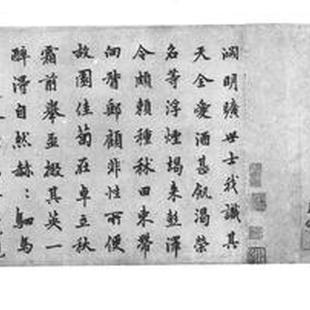 淵明曠世士我識其
天全愛酒甚飢渴榮
名等浮煙朅来彭澤
令頗賴種秫田束帶
向督郵顧非性所便
故園佳菊在卓立秋
霜前舉盃掇其英一
醉得自然赫〻駟馬